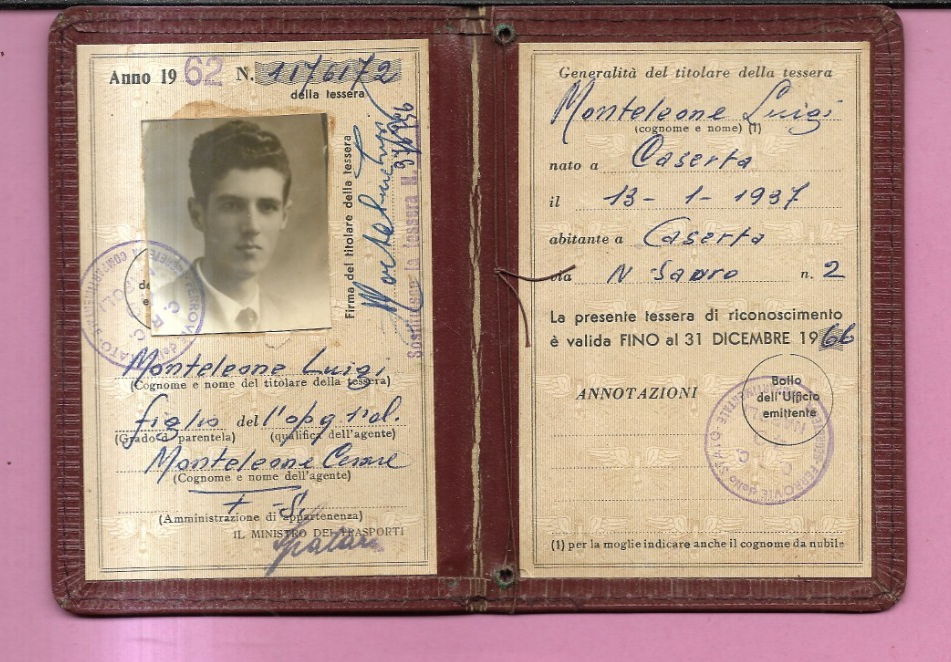 Anno 1962 N. 1176172
della tessera
Firma del titolare della tessera
Sostituisce la tessera N.
Monteleone Luigi
(Cognome e nome del titolare della tessera)
figlio del l'opg 1ª cl.
(Grado di parentela) (qualifica dell'agente)
Monteleone Cesare
(Cognome e nome dell'agente)
F S.
(Amministrazione di appartenenza)
IL MINISTRO DEI TRASPORTI
Generalità del titolare della tessera
Monteleone Luigi
(cognome e nome) (1)
nato a Caserta
il 13-1-1937
abitante a Caserta
via N Sauro n. 2
La presente tessera di riconoscimento
è valida FINO al 31 DICEMBRE 1966
ANNOTAZIONI
Bollo
dell'Ufficio
emittente
FERROVIE dello STATO
(1) per la moglie indicare anche il cognome da nubile